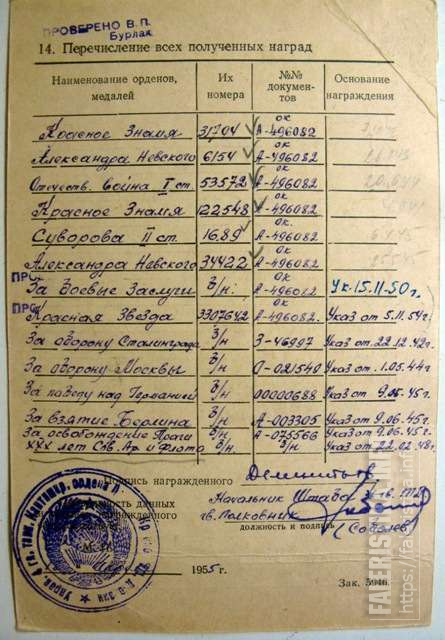 ПРОВЕРЕНО В. П.
Бурлак
14. Перечисление всех полученных наград
Наименование орденов, медалей Их номера №№ документов Основание награждения
Красное Знамя 31704 ок А-496082
Александра Невского 6154 ок А-496082
Отечеств. война I ст. 53572 ок А-496082
Красное Знамя 122548 ок А-496082
Суворова II ст. 1689 ок А-496082
Александра Невского 34422 ок А-496082
За Боевые Заслуги б/н: ок Ук. 15.11.50 г.
Красная Звезда 3307642 ок А-496082. Указ от 5.11.54г.
За оборону Сталинграда б/н З-46997 Указ от 22.12.42г.
За оборону Москвы б/н О-021540 Указ от 1.05.44г
За победу над Германией б/н 00000688 Указ от 9.05.45г.
За взятие Берлина б/н А-003305 Указ от 9.06.45г.
За освобождение Праги б/н А-075566 Указ от 9.06.45г.
XXX лет Сов. Ар и флота б/н б/н Указ от 22.02.48г.
Подпись награжденного
Начальник Штаба
гв. Полковник
должность и подпись
(Соболев)
1955 г.
Зак. 5946.
FALERISTIKA